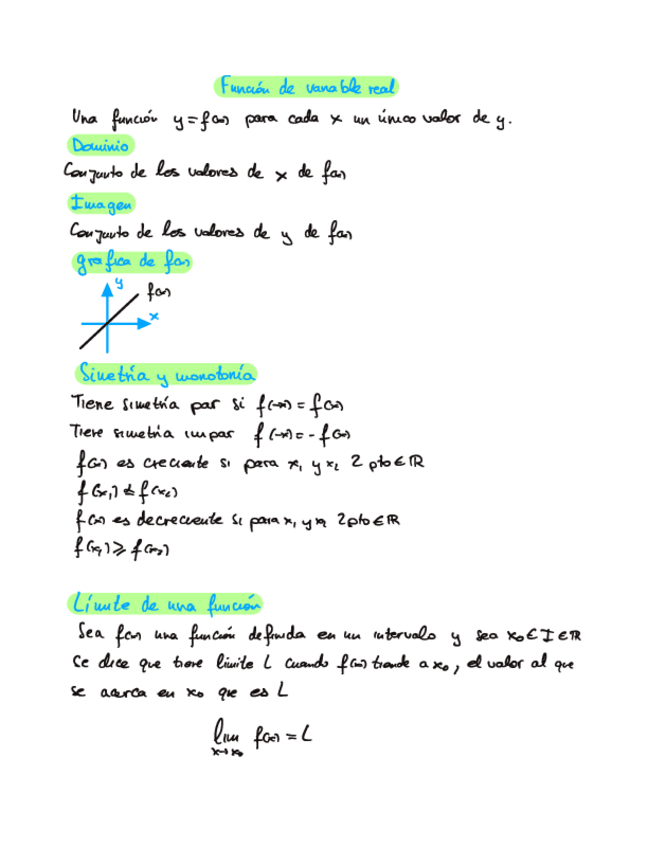 Función de variable real
Una función y=f(x) para cada x un único valor de y.
Dominio
Conjunto de los valores de x de f(x)
Imagen
Conjunto de los valores de y de f(x)
grafica de f(x)
y
f(x)
x
Simetría y monotonía
Tiene simetría par si f(-x) = f(x)
Tiene simetría impar f(-x) = - f(x)
f(x) es creciente si para x₁ y x₂ 2 pto ∈ ℝ
f(x₁) ≤ f(x₂)
f(x) es decreciente si para x₁ y x₂ 2 pto ∈ ℝ
f(x₁) ≥ f(x₂)
Límite de una función
Sea f(x) una función definida en un intervalo y sea x₀ ∈ I ∈ ℝ
Se dice que tiene limite L cuando f(x) tiende a x₀, el valor al que
se acerca en x₀ que es L
lim f(x) = L
x→x₀